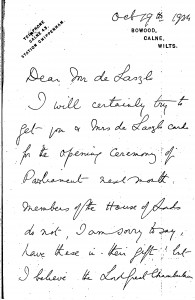 Oct 19th 1934
TELEPHONE
CALNE 43.
STATION CHIPPENHAM.
BOWOOD,
CALNE,
WILTS.
Dear Mr de Laszlo
I will certainly try to
get you & Mrs de Laszlo cards
for the opening ceremony of
Parliament next month.
Members of the House of Lords
do not, I am sorry to say,
have these in their gift: but
I believe the Lord Great Chamberlain